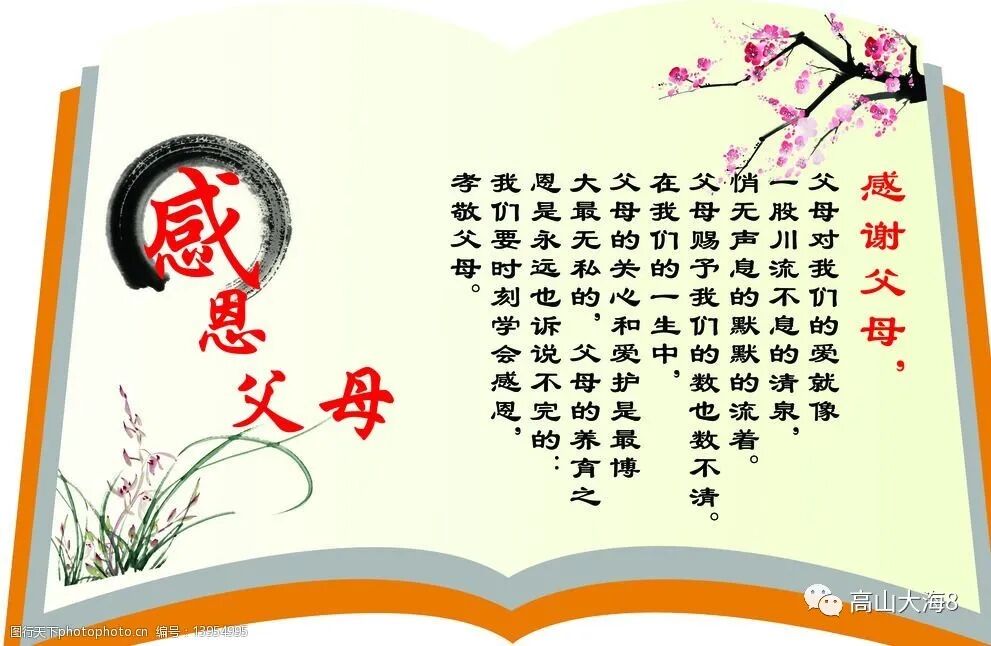 感恩父母
感谢父母，
父母对我们的爱就像
一股川流不息的清泉，
悄无声息的默默的流着。
父母赐予我们的数也数不清。
在我们的一生中，
父母的关心和爱护是最博
大最无私的，父母的养育之
恩是永远也诉说不完的：
我们要时刻学会感恩，
孝敬父母。
高山大海8
图行天下photophoto.cn 编号：13954995